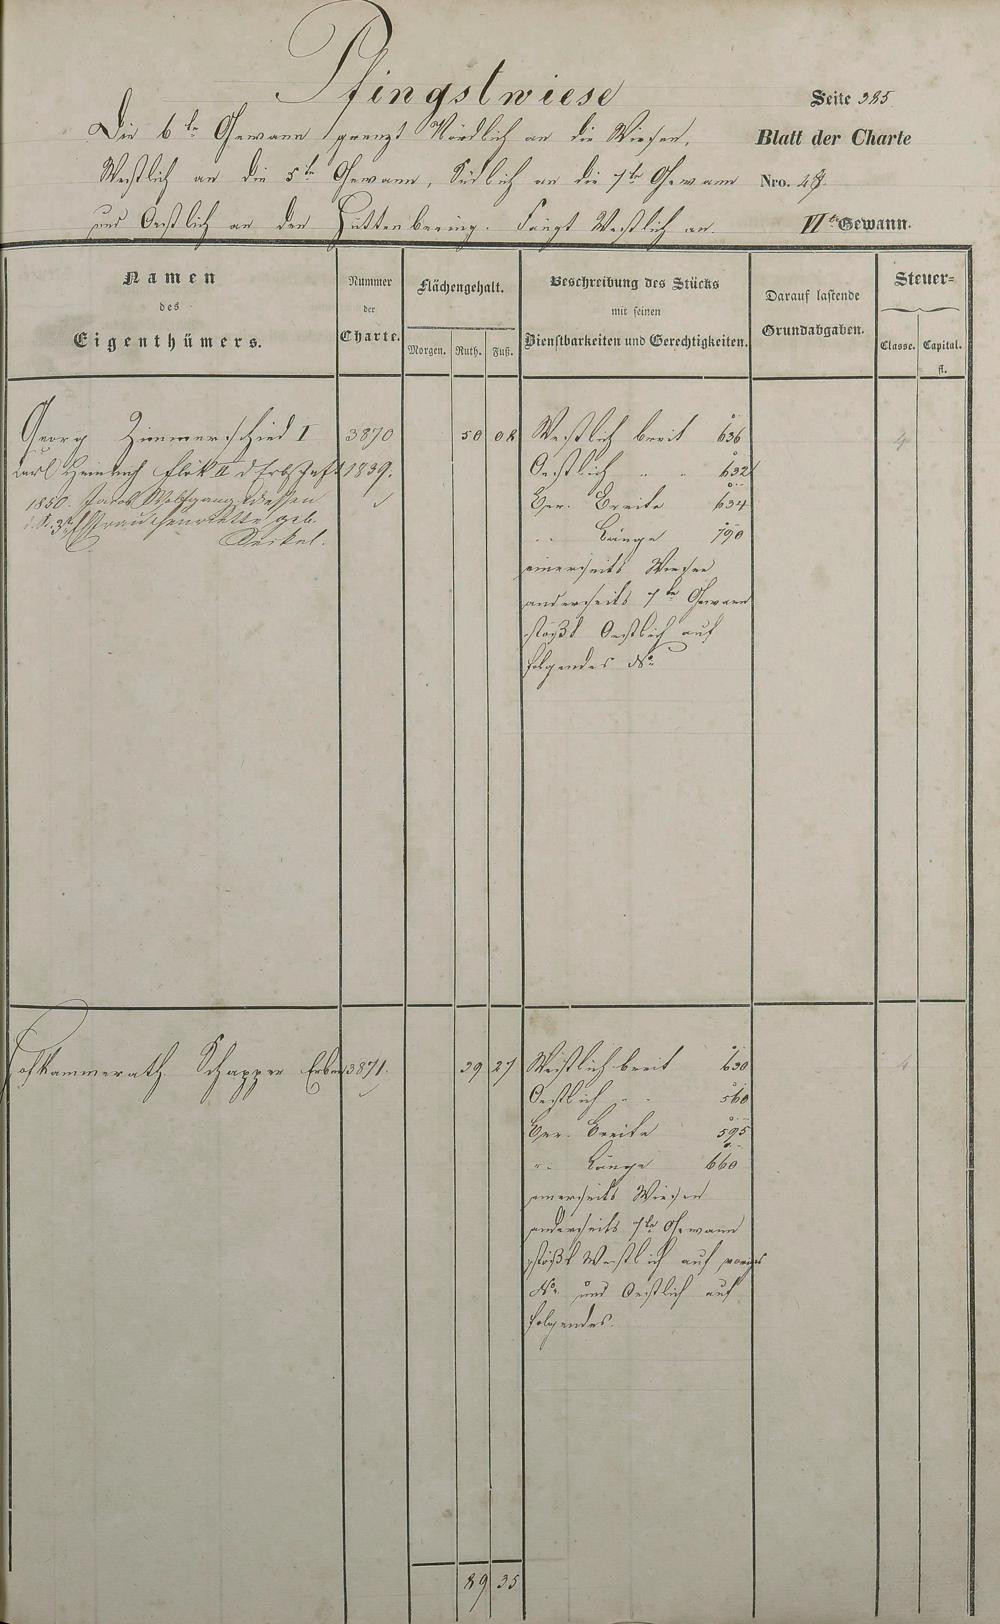 Pfingstwiese
Seite 385
Die 6te Gewann grenzt Nördlich an die Wiesen,
Blatt der Charte
Westlich an die 5te Gewann, Südlich an die 7te Gewann
Nro. 47.
und Oestlich an den Hüttenbering. Fängt Westlich an.
VIte Gewann.
Namen
des
Eigenthümers.
Nummer
der
Charte.
Flächengehalt.
Morgen. Ruth. Fuß.
Beschreibung des Stücks
mit seinen
Dienstbarkeiten und Gerechtigkeiten.
Darauf lastende
Grundabgaben.
Steuer=
Classe. Capital.
fl.
Georg Zimmerschied I 3870 50 08 Westlich breit 636 4
Carl Heinrich Flök II d Erbschaft 1839. Oestlich " " 632
1850. Jacob Wolfgang dessen Ver. Breite 634
geb. " Länge 790
einerseits Wiesen
anderseits 7te Gewann
stößt Oestlich auf
folgendes No
Hofkammerath Schapper Erben 3871. 39 27 Westlich breit 630 4
Oestlich " " 560
Ver. Breite 595
" Länge 660
einerseits Wiesen
anderseits 7te Gewann
stößt Westlich auf voriges
No. und Oestlich auf
folgendes.
89 35